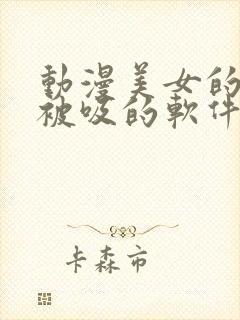 動漫美女的
被吸的軟件
卡森市